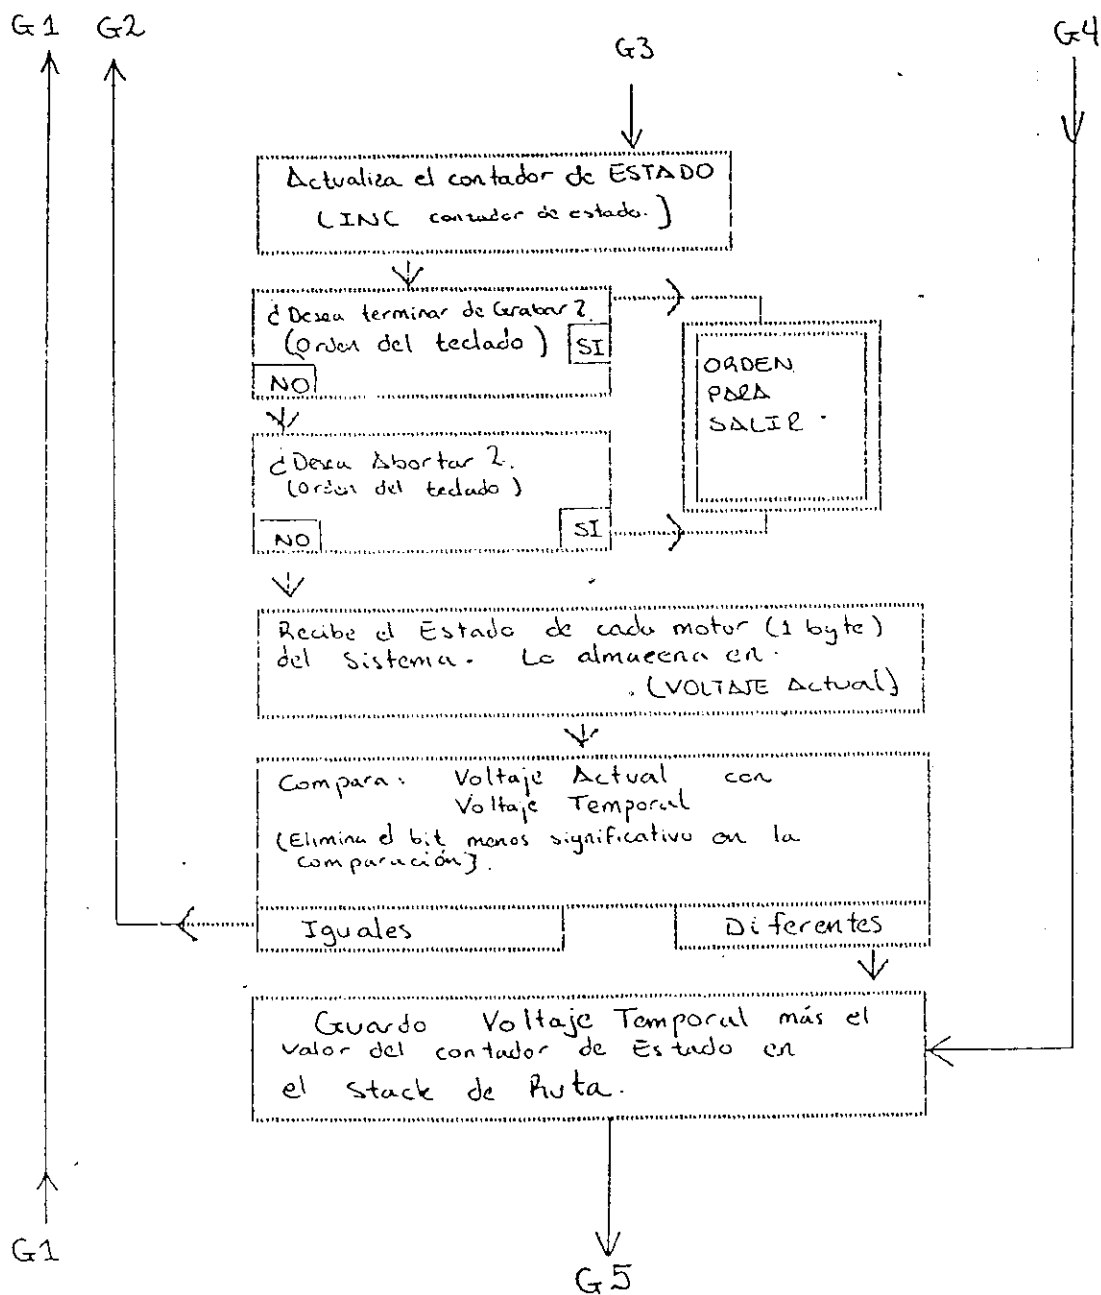 G1 G2
G3
G4
Actualiza el contador de ESTADO
(INC contador de estado.)
¿Desea terminar de Grabar?
(orden del teclado) SI
NO
ORDEN
PARA
SALIR.
¿Desea Abortar?.
(orden del teclado)
NO SI
Recibe el Estado de cada motor (1 byte)
del sistema. Lo almacena en.
. (VOLTAJE Actual)
Compara: Voltaje Actual con
Voltaje Temporal
(Elimina el bit menos significativo en la
comparación).
Iguales Diferentes
Guardo Voltaje Temporal más el
valor del contador de Estado en
el stack de Ruta.
G1
G5